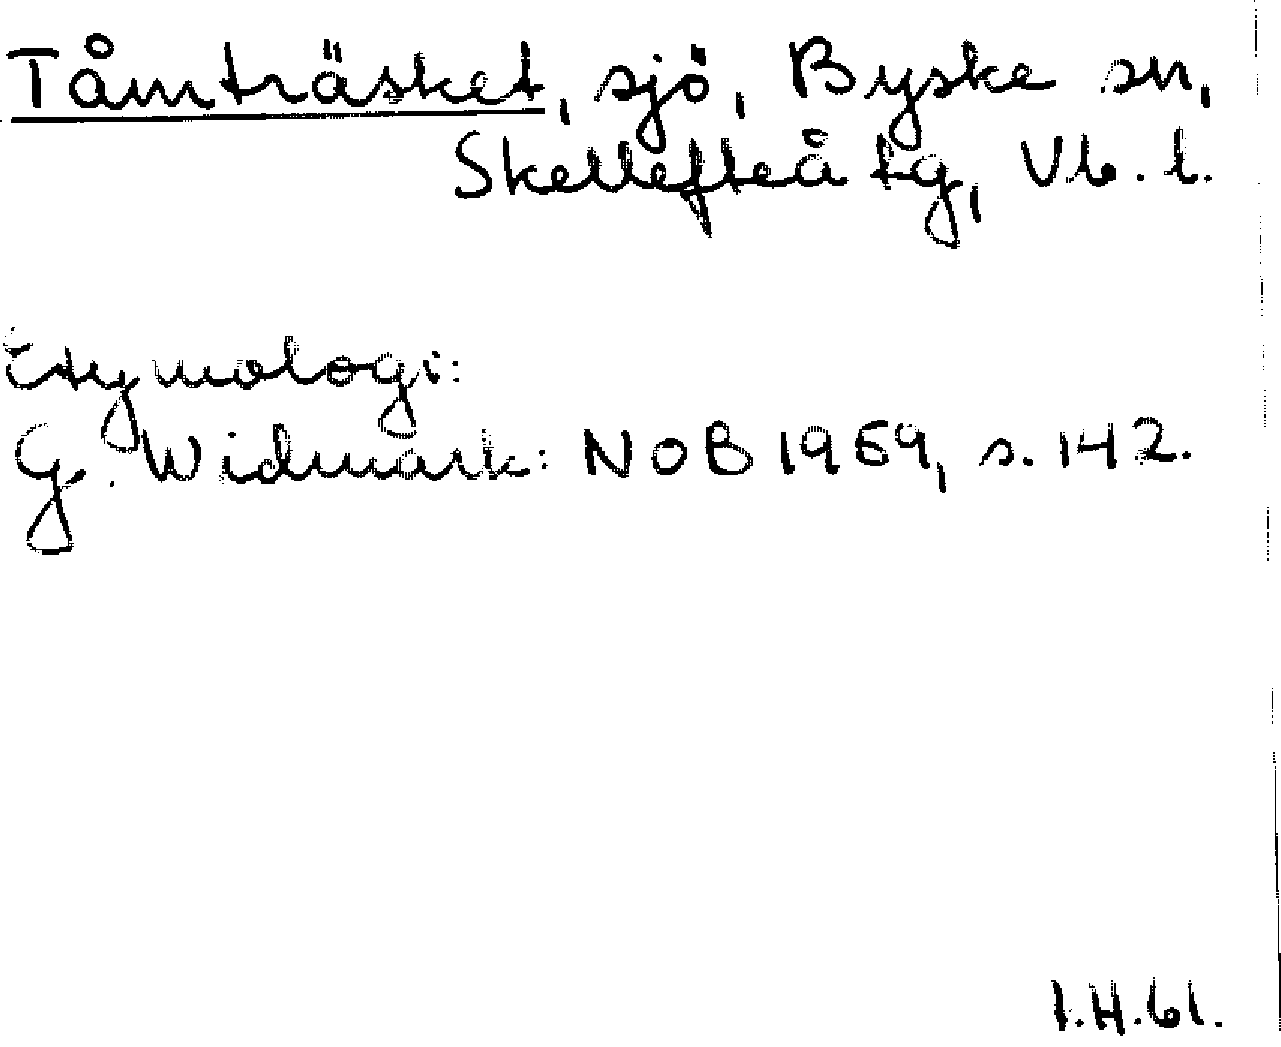 Tåmträsket, sjö, Byske sn,
Skellefteå tg, Vb. l.
Etymologi:
G. Widmark: NoB 1959, s. 142.
I.H.61.